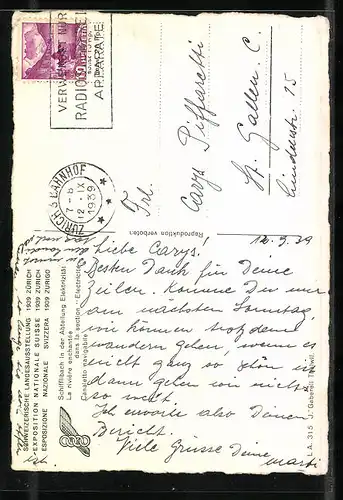 VERWENDET NUR
RADIO
APPARATE
ZÜRICH 3 BAHNHOF
7-8
12. IX
1939
Frl.
Carys Piffaretti
St. Gallen. C.
Linderstr. 15
Reproduktion verboten
12.9.39
Liebe Carys!
Besten Dank für Deine
Zeilen. Komme Du nur
am nächsten Sonntag,
wir können trotzdem
wandern gehen, wenn es
nicht ganz so schön ist
dann gehen wir nicht
so weit.
Ich erwarte also Deinen
Bericht.
Viele Grüsse Deine
Marti
ist.
SCHWEIZERISCHE LANDESAUSSTELLUNG 1939 ZÜRICH
EXPOSITION NATIONALE SUISSE 1939 ZURICH
ESPOSIZIONE NAZIONALE SVIZZERA 1939 ZURIGO
Schifflibach in der Abteilung Elektrizität
La rivière enchantée
dans la section: Electricité
L.A. 315 J. Gaberell Thalwil.